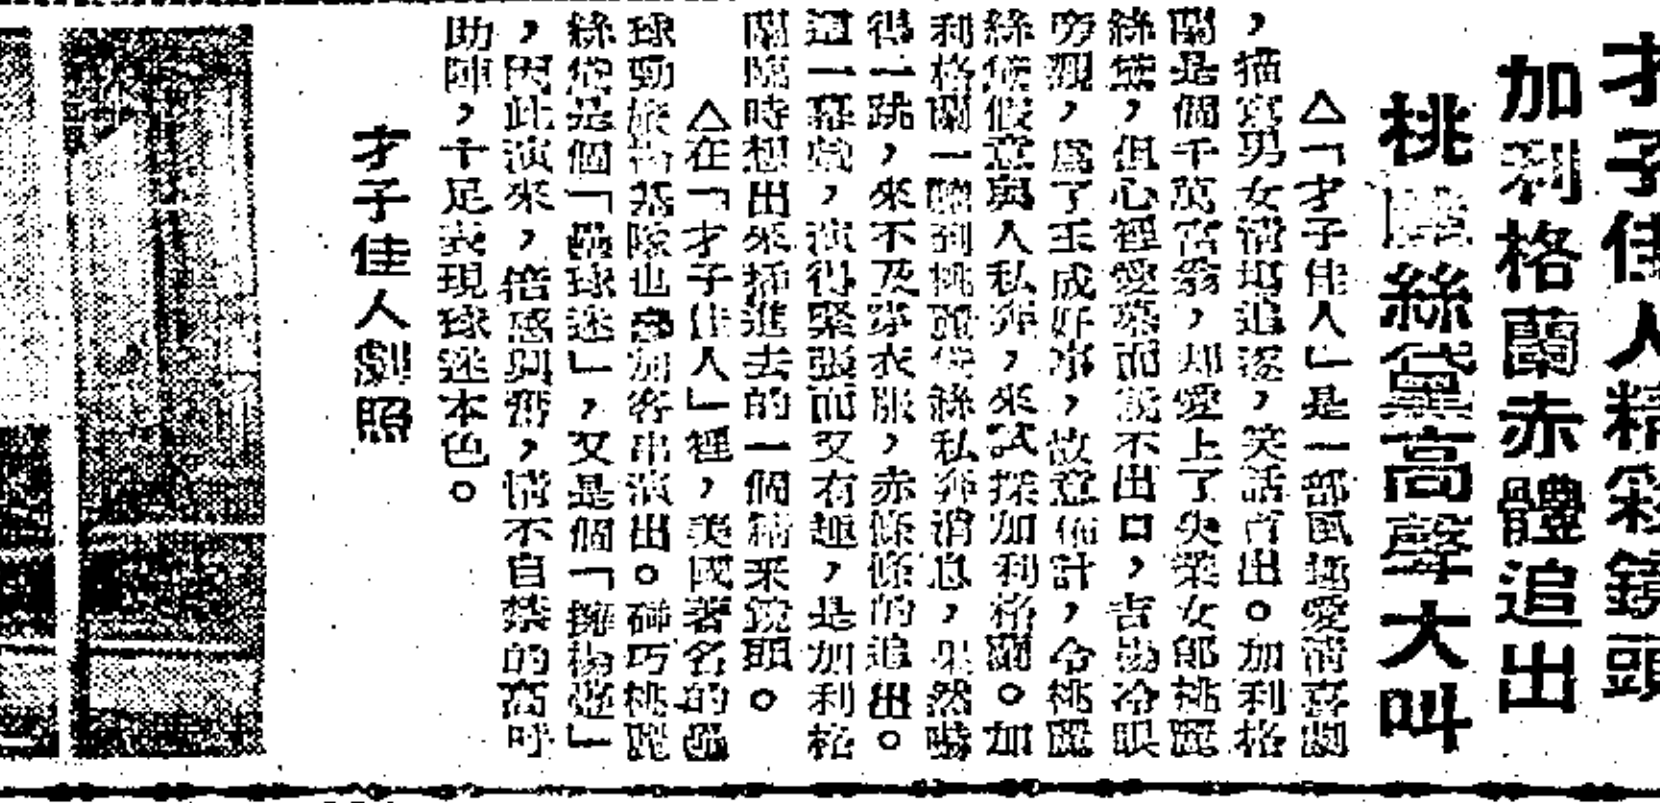 才子佳人精彩鏡頭
加利格蘭赤體追出
桃麗絲黛高聲大叫
△「才子佳人」是一部風趣愛情喜劇
，描寫男女情場追逐，笑話百出。加利格
蘭是個千萬富翁，却愛上了失業女郎桃麗
絲黛，但心裡愛慕而說不出口，吉勃冷眼
旁觀，爲了玉成好事，故意佈計，令桃麗
絲黛假意與人私奔，來試探加利格蘭。加
利格蘭一聽到桃麗黛絲私奔消息，果然嚇
得一跳，來不及穿衣服，赤條條的追出。
這一幕戲，演得緊張而又有趣，是加利格
蘭臨時想出來插進去的一個精采鏡頭。
△在「才子佳人」裡，美國著名的壘
球勁旅洛基隊也參加客串演出。碰巧桃麗
絲黛是個「壘球迷」，又是個「擁楊迷」
，因此演來，倍感興奮，情不自禁的高呼
助陣，十足表現球迷本色。
才子佳人劇照